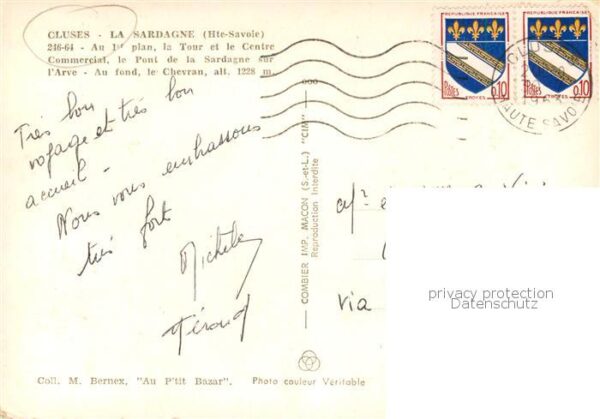 CLUSES - LA SARDAGNE (Hte-Savoie)
246-64 - Au 1er plan, la Tour et le Centre
Commercial, le Pont de la Sardagne sur
l'Arve - Au fond, le Chevran, alt. 1228 m.
Très bon
voyage et très bon
accueil -
Nous vous embrassons
très fort
Michèle
COMBIER IMP. MACON (S.-et-L.) "CIM"
Reproduction Interdite
REPUBLIQUE FRANÇAISE
Postes 0,10
TROYES
REPUBLIQUE FRANÇAISE
Postes 0,10
TROYES
HAUTE SAVOIE
via
privacy protection
Datenschutz
Coll. M. Bernex, "Au P'tit Bazar".
Photo couleur Véritable